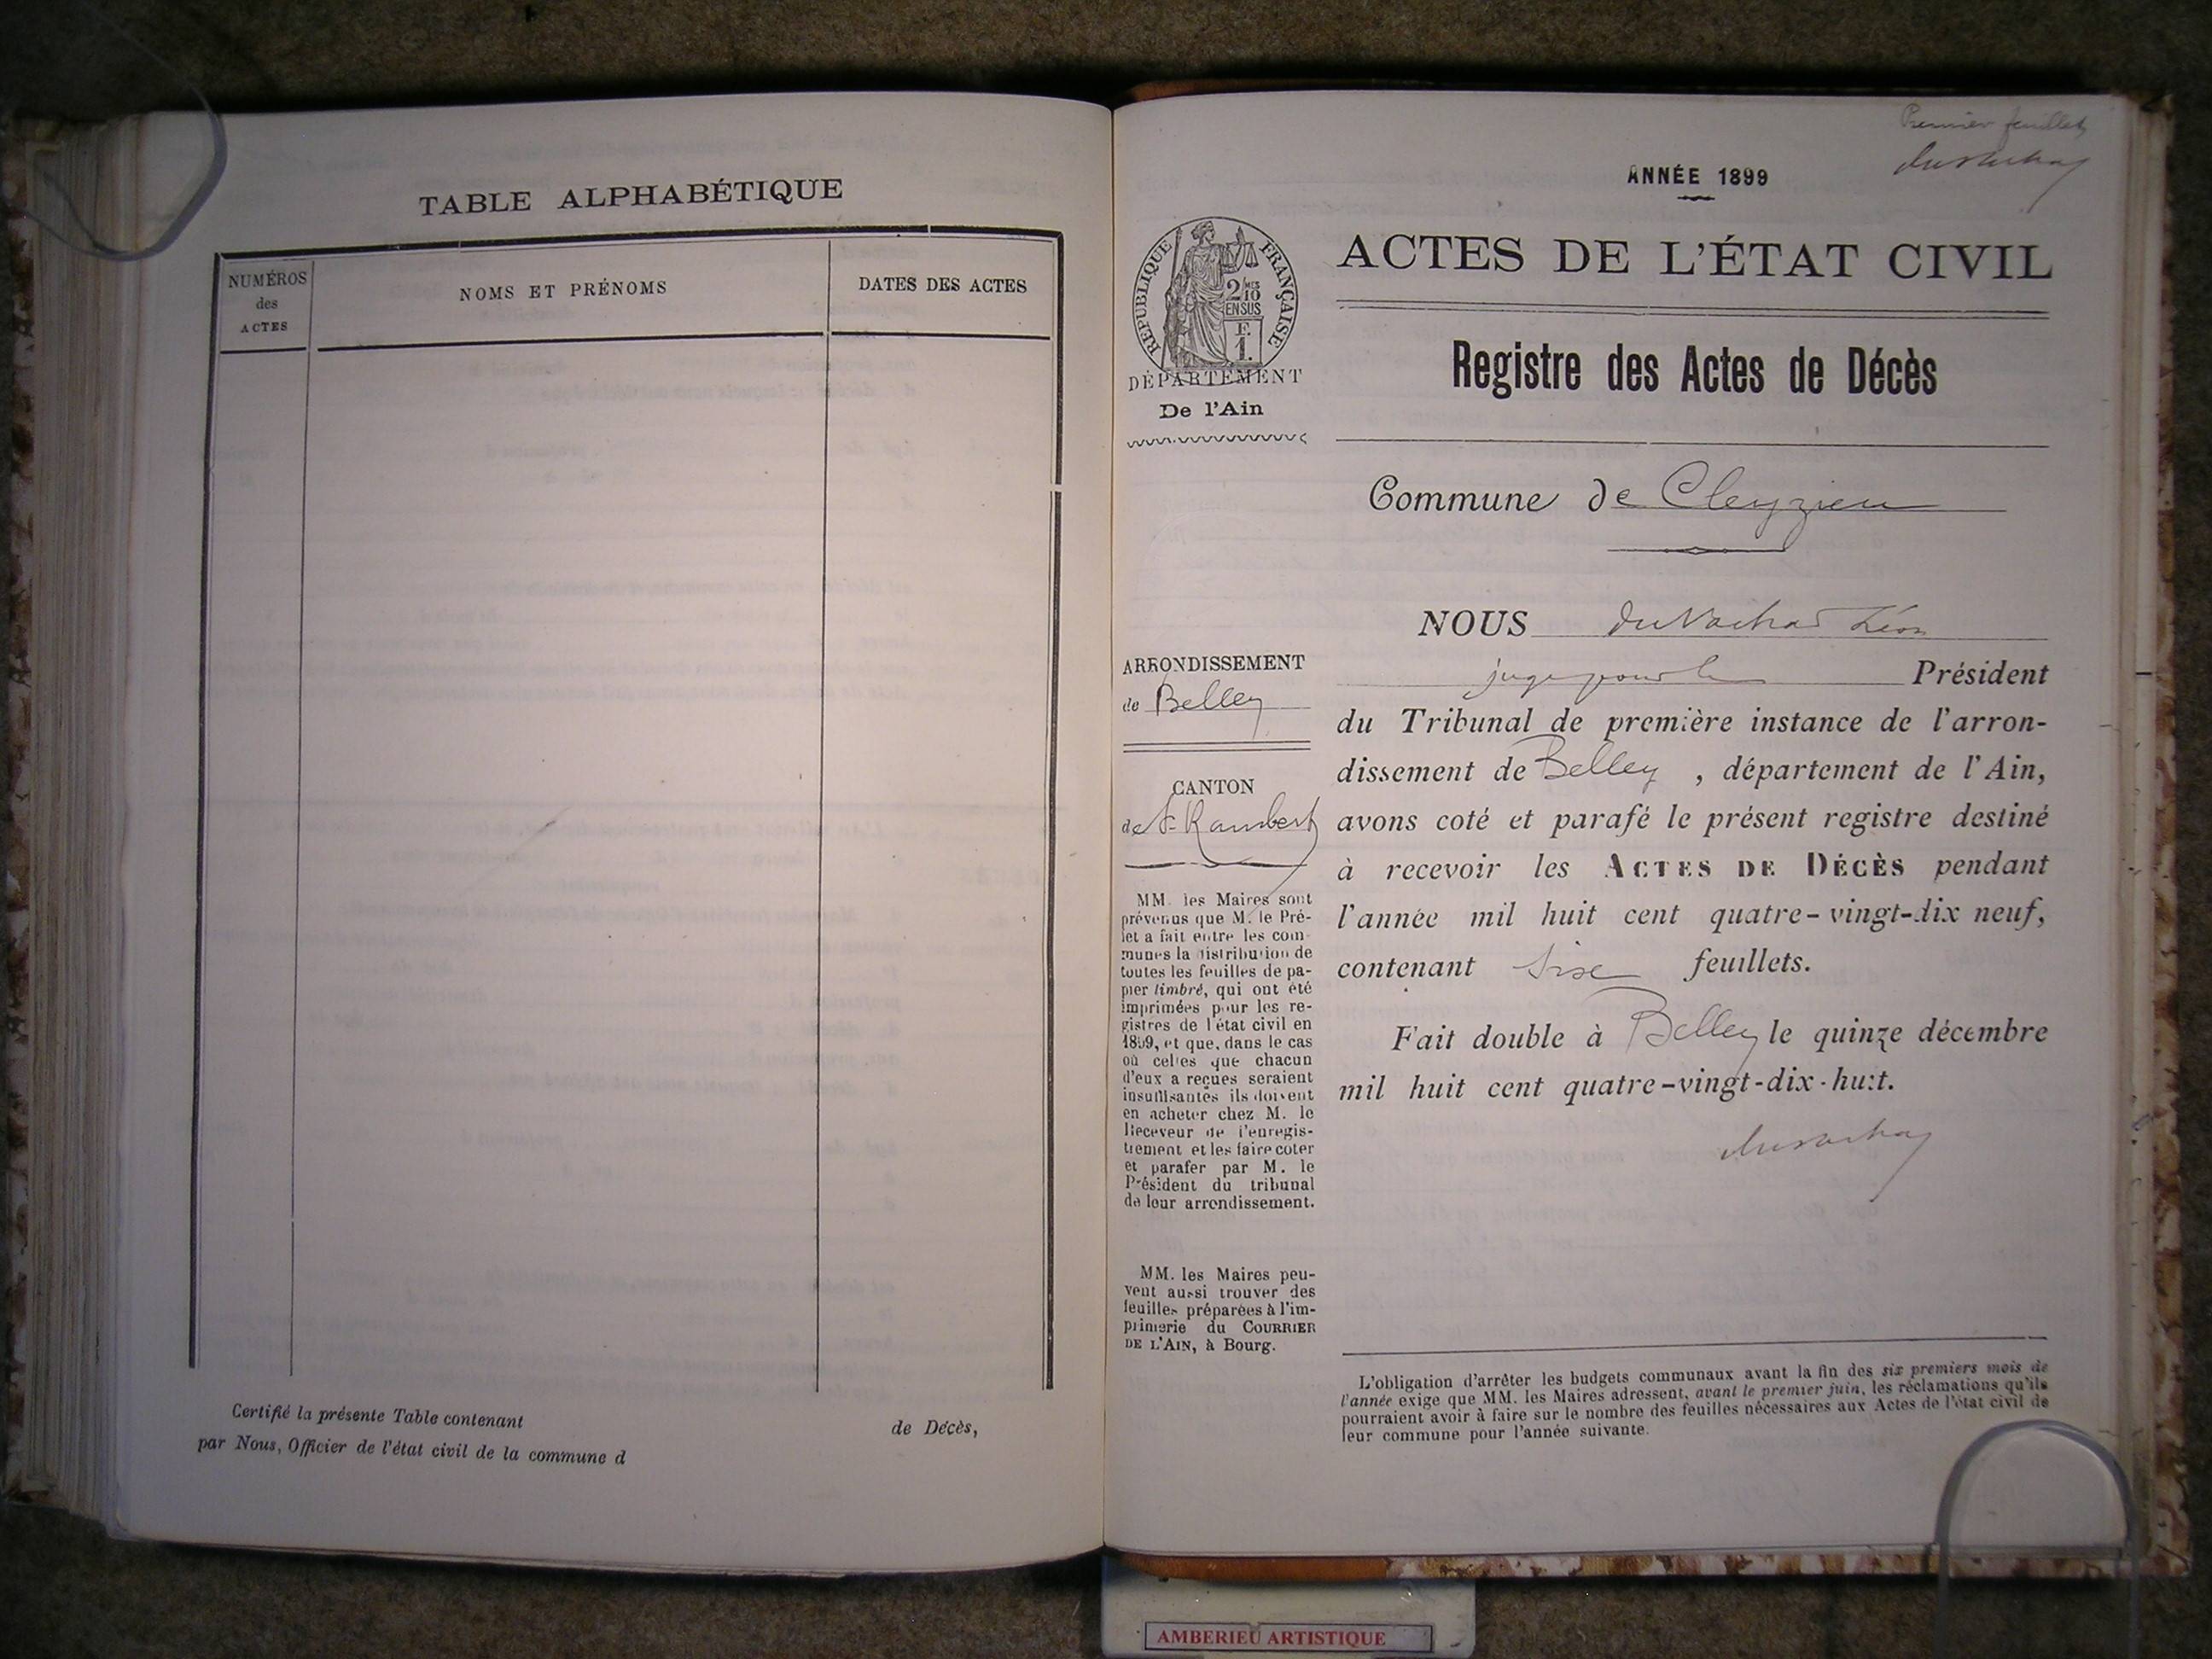 TABLE ALPHABÉTIQUE
NUMÉROS
des
ACTES
NOMS ET PRÉNOMS
DATES DES ACTES
Certifié la présente Table contenant de Décès,
par Nous, Officier de l'état civil de la commune d
Premier feuillet
ANNÉE 1899
RÉPUBLIQUE FRANÇAISE
2/10
EN SUS
F.
1.
DÉPARTEMENT
De l'Ain
ACTES DE L'ÉTAT CIVIL
Registre des Actes de Décès
Commune de Cleyzieu
ARRONDISSEMENT
de Belley
CANTON
de St Rambert
MM. les Maires sont
prévenus que M. le Pré-
fet a fait entre les com-
munes la distribution de
toutes les feuilles de pa-
pier timbré, qui ont été
imprimées pour les re-
gistres de l'état civil en
1899, et que, dans le cas
où celles que chacun
d'eux a reçues seraient
insuffisantes ils doivent
en acheter chez M. le
Receveur de l'enregis-
trement et les faire coter
et parafer par M. le
Président du tribunal
de leur arrondissement.
MM. les Maires peu-
vent aussi trouver des
feuilles préparées à l'im-
primerie du COURRIER
DE L'AIN, à Bourg.
NOUS Duvachat Léon
juge pour le Président
du Tribunal de première instance de l'arron-
dissement de Belley, département de l'Ain,
avons coté et parafé le présent registre destiné
à recevoir les ACTES DE DÉCÈS pendant
l'année mil huit cent quatre-vingt-dix neuf,
contenant feuillets.
Fait double à Belley le quinze décembre
mil huit cent quatre-vingt-dix-huit.
L'obligation d'arrêter les budgets communaux avant la fin des six premiers mois de
l'année exige que MM. les Maires adressent, avant le premier juin, les réclamations qu'ils
pourraient avoir à faire sur le nombre des feuilles nécessaires aux Actes de l'état civil de
leur commune pour l'année suivante.
AMBERIEU ARTISTIQUE